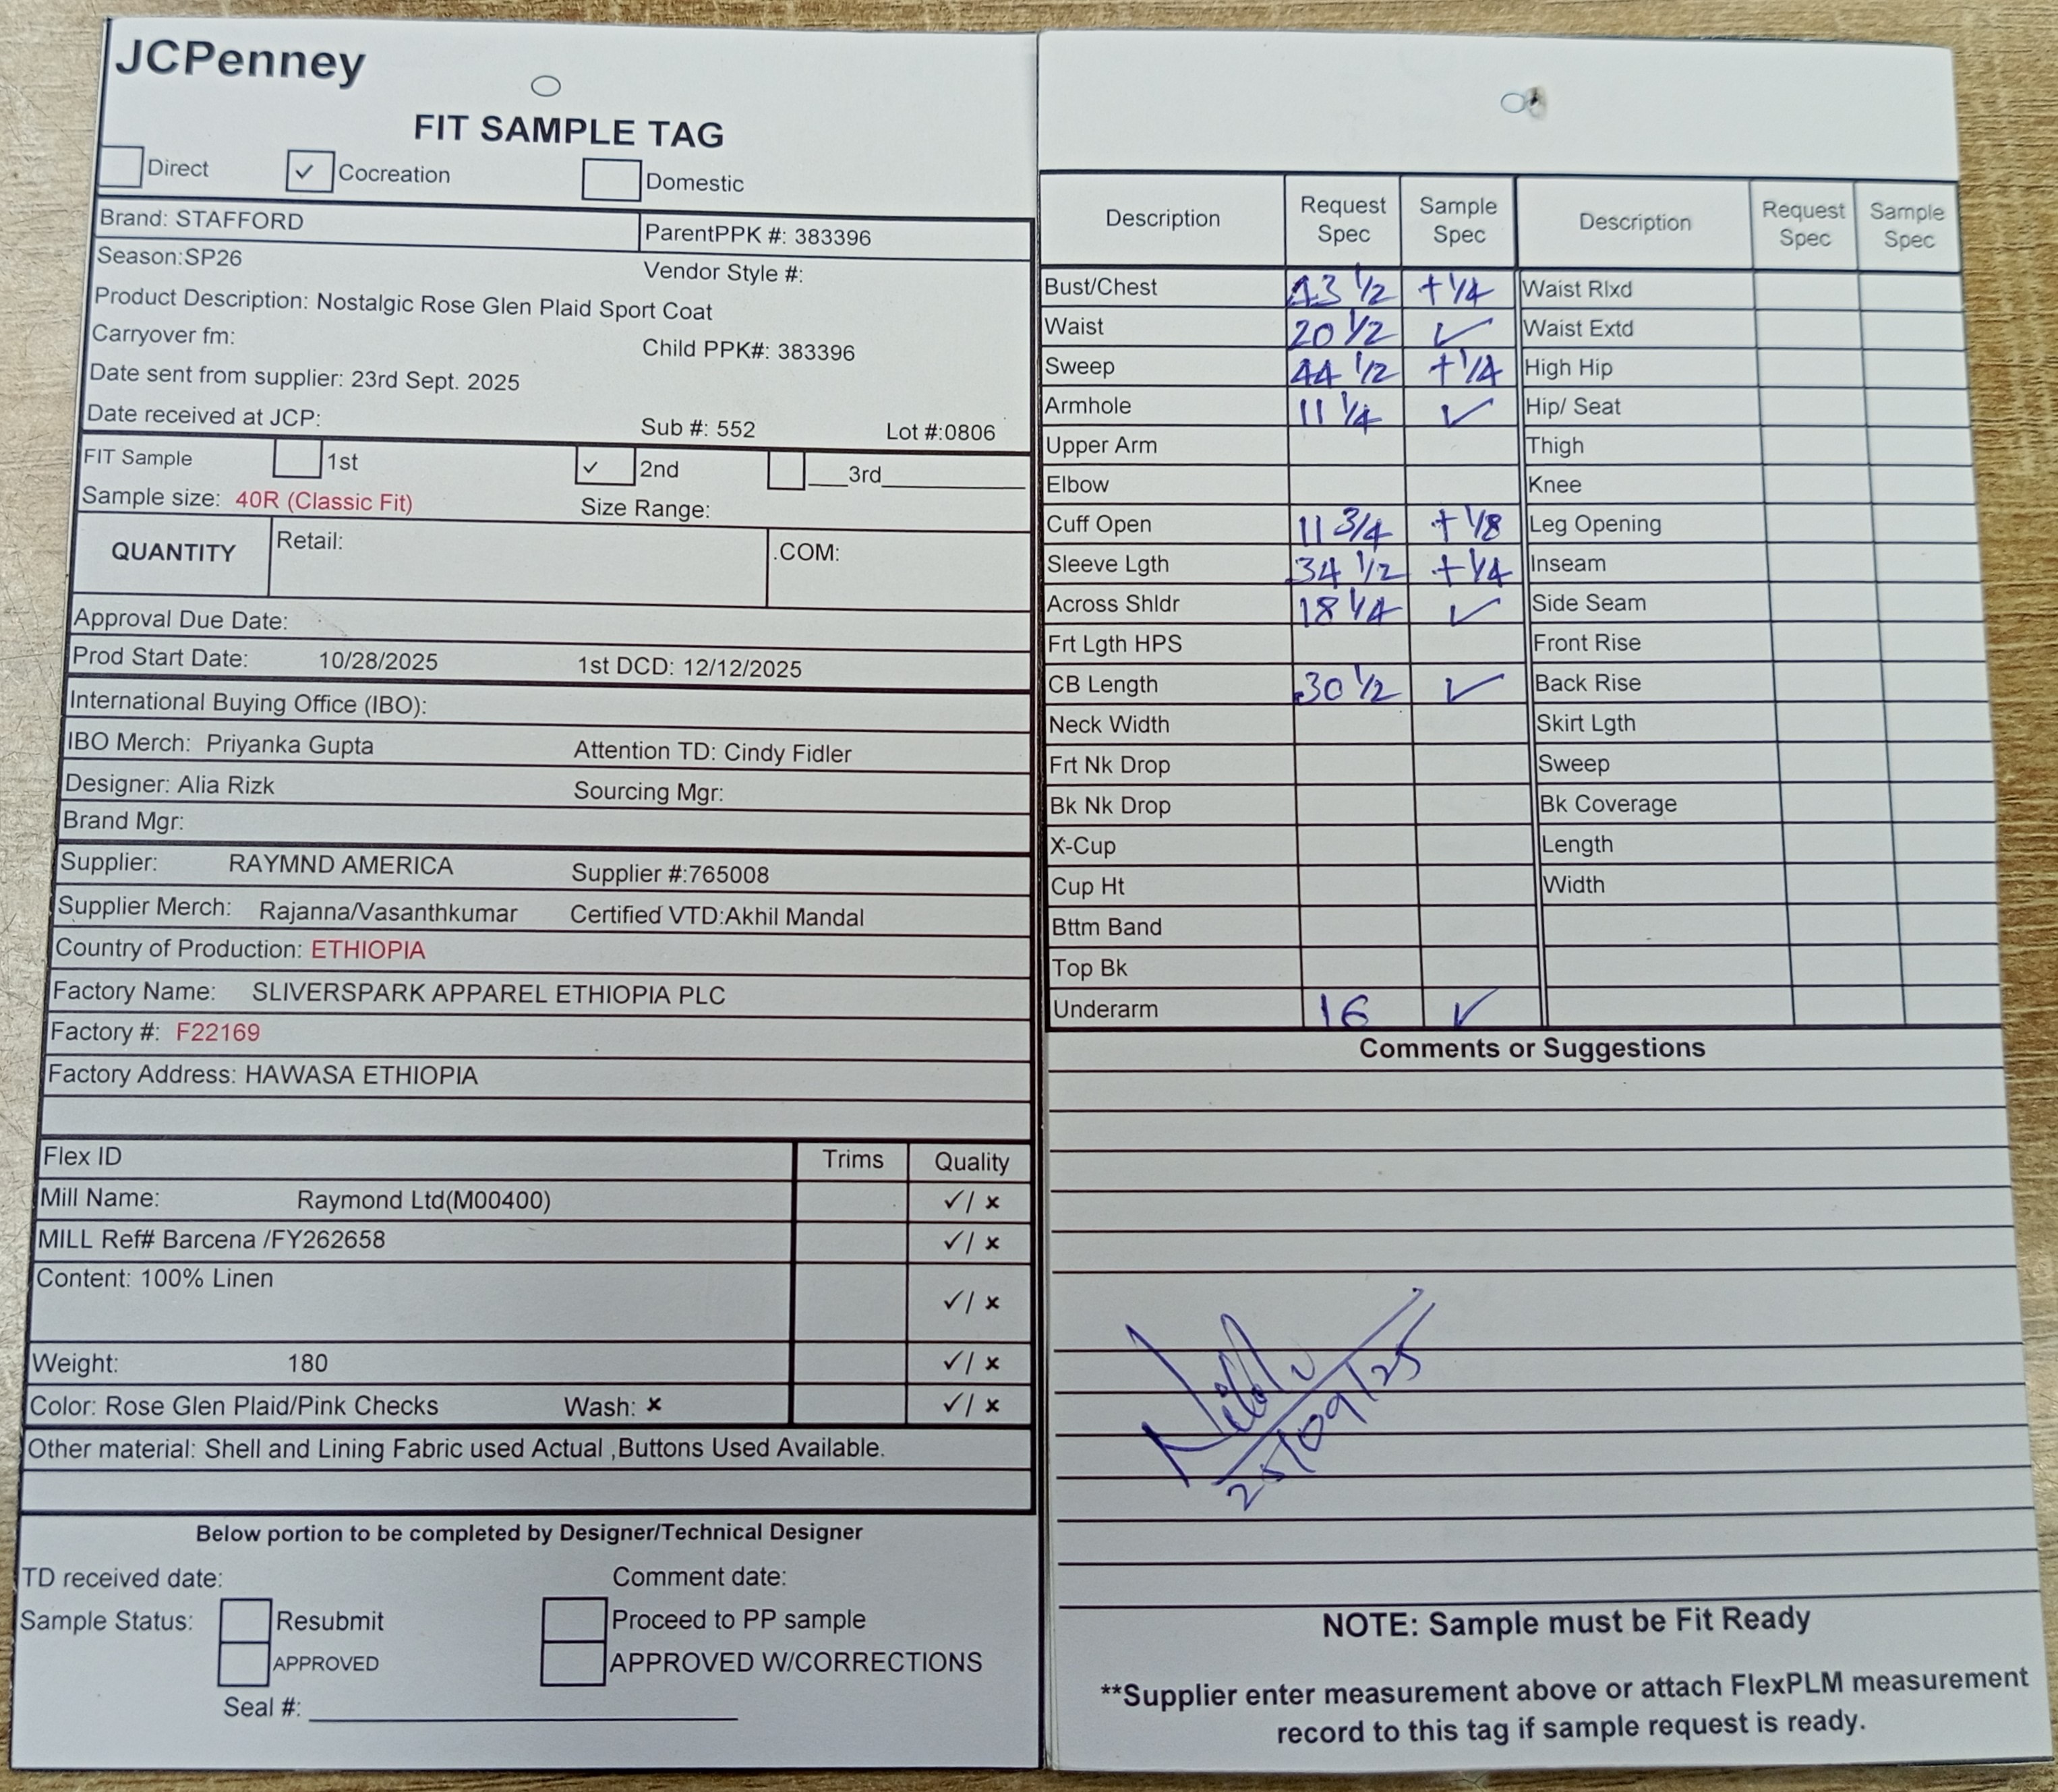 JCPenney
FIT SAMPLE TAG
Direct ✓ Cocreation Domestic
Brand: STAFFORD ParentPPK #: 383396
Season:SP26 Vendor Style #:
Product Description: Nostalgic Rose Glen Plaid Sport Coat
Carryover fm: Child PPK#: 383396
Date sent from supplier: 23rd Sept. 2025
Date received at JCP: Sub #: 552 Lot #:0806
FIT Sample 1st ✓ 2nd ___3rd___________
Sample size: 40R (Classic Fit) Size Range:
QUANTITY Retail: .COM:
Approval Due Date:
Prod Start Date: 10/28/2025 1st DCD: 12/12/2025
International Buying Office (IBO):
IBO Merch: Priyanka Gupta Attention TD: Cindy Fidler
Designer: Alia Rizk Sourcing Mgr:
Brand Mgr:
Supplier: RAYMND AMERICA Supplier #:765008
Supplier Merch: Rajanna/Vasanthkumar Certified VTD:Akhil Mandal
Country of Production: ETHIOPIA
Factory Name: SLIVERSPARK APPAREL ETHIOPIA PLC
Factory #: F22169
Factory Address: HAWASA ETHIOPIA
Flex ID Trims Quality
Mill Name: Raymond Ltd(M00400) ✓/ ×
MILL Ref# Barcena /FY262658 ✓/ ×
Content: 100% Linen ✓/ ×
Weight: 180 ✓/ ×
Color: Rose Glen Plaid/Pink Checks Wash: × ✓/ ×
Other material: Shell and Lining Fabric used Actual ,Buttons Used Available.
Below portion to be completed by Designer/Technical Designer
TD received date: Comment date:
Sample Status: Resubmit Proceed to PP sample
APPROVED APPROVED W/CORRECTIONS
Seal #: ____________________
Description Request Spec Sample Spec Description Request Spec Sample Spec
Bust/Chest 43 1/2 +1/4 Waist Rlxd
Waist 20 1/2 ✓ Waist Extd
Sweep 44 1/2 +1/4 High Hip
Armhole 11 1/4 ✓ Hip/ Seat
Upper Arm Thigh
Elbow Knee
Cuff Open 11 3/4 +1/8 Leg Opening
Sleeve Lgth 34 1/2 +1/4 Inseam
Across Shldr 18 1/4 ✓ Side Seam
Frt Lgth HPS Front Rise
CB Length 30 1/2 ✓ Back Rise
Neck Width Skirt Lgth
Frt Nk Drop Sweep
Bk Nk Drop Bk Coverage
X-Cup Length
Cup Ht Width
Bttm Band
Top Bk
Underarm 16 ✓
Comments or Suggestions
25/09/25
NOTE: Sample must be Fit Ready
**Supplier enter measurement above or attach FlexPLM measurement
record to this tag if sample request is ready.